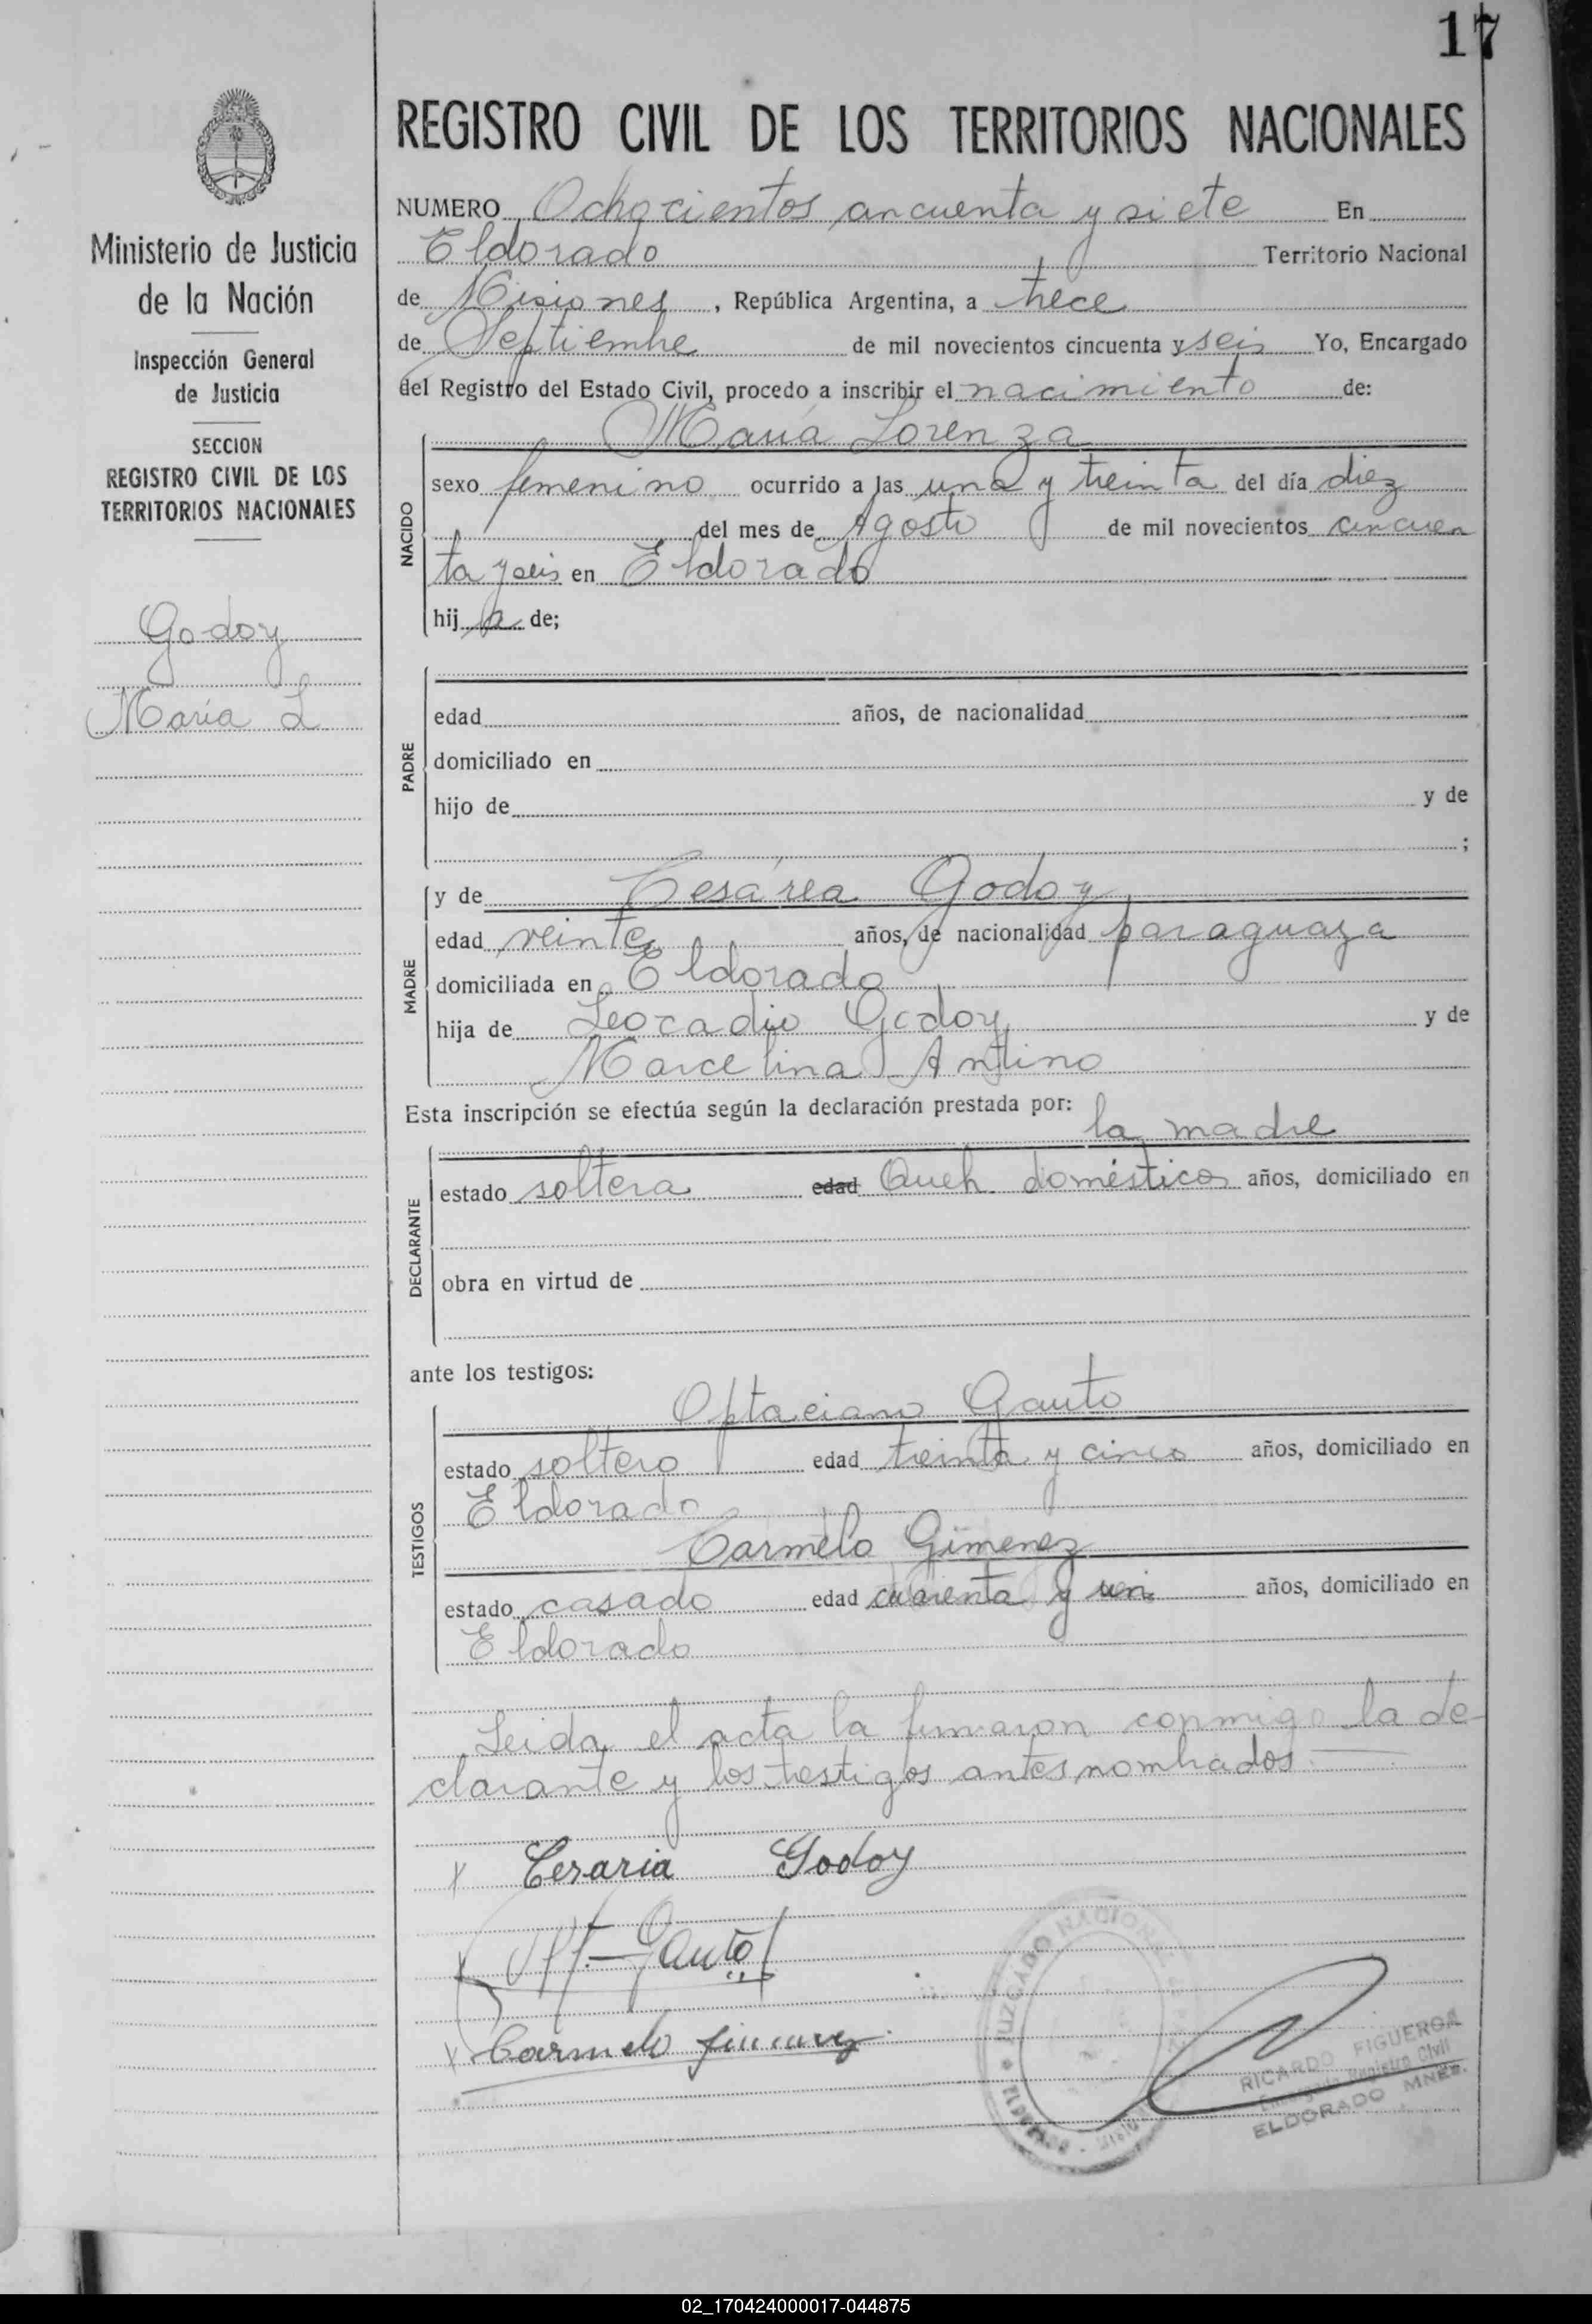 17
REGISTRO CIVIL DE LOS TERRITORIOS NACIONALES
Ministerio de Justicia
de la Nación
Inspección General
de Justicia
SECCION
REGISTRO CIVIL DE LOS
TERRITORIOS NACIONALES
Godoy
María L
NUMERO Ochocientos cincuenta y siete En
Eldorado Territorio Nacional
de Misiones, República Argentina, a trece
de Septiembre de mil novecientos cincuenta y seis Yo, Encargado
del Registro del Estado Civil, procedo a inscribir el nacimiento de:
María Lorenza
NACIDO
sexo femenino ocurrido a las una y treinta del día diez
del mes de Agosto de mil novecientos cincuen
ta y seis en Eldorado
hij a de;
PADRE
edad años, de nacionalidad
domiciliado en
hijo de y de
;
MADRE
y de Cesárea Godoy
edad veinte años, de nacionalidad paraguaya
domiciliada en Eldorado
hija de Leocadio Godoy y de
Marcelina Antino
Esta inscripción se efectúa según la declaración prestada por:
la madre
DECLARANTE
estado soltera edad Queh. domésticos años, domiciliado en
obra en virtud de
ante los testigos:
TESTIGOS
Optaciano Gauto
estado soltero edad treinta y cinco años, domiciliado en
Eldorado
Carmelo Gimenez
estado casado edad cuarenta y un años, domiciliado en
Eldorado
Leida el acta la firmaron conmigo la de-
clarante y los testigos antes nombrados.
x Ceraria Godoy
Opt. Gauto
x Carmelo Jimenez
JUZGADO NACIONAL
ELDORADO - MISIONES
RICARDO FIGUEROA
Encargado Registro Civil
ELDORADO MNES.
02_170424000017-044875